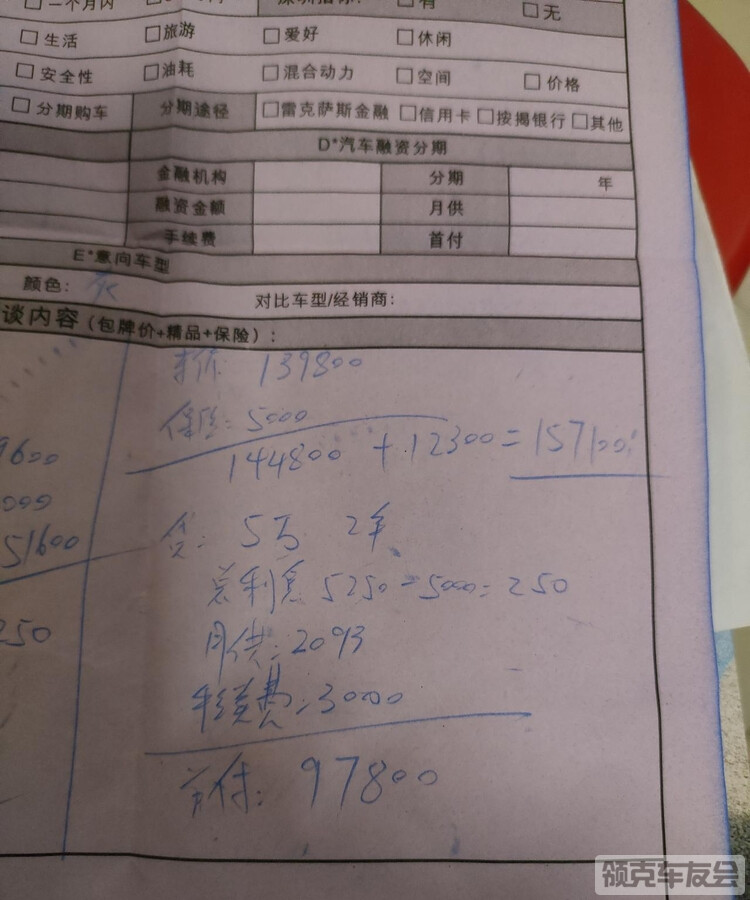 一个月内 有 无
生活 旅游 爱好 休闲
安全性 油耗 混合动力 空间 价格
分期购车 分期途径 雷克萨斯金融 信用卡 按揭银行 其他
D*汽车融资分期
金融机构 分期 年
融资金额 月供
手续费 首付
E*意向车型
颜色: 灰 对比车型/经销商:
谈内容(包牌价+精品+保险):
车价: 139800
保险: 5000
144800 + 12300 = 157100
9600
000
51600
250
贷: 5万 2年
总利息 5250-5000=250
月供: 2093
手续费: 3000
首付: 97800
领克车友会